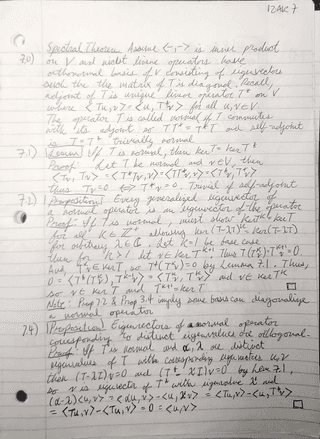 12AC 7
7.0) Spectral Theorem Assume <-,-> is inner product
on V and linear operators have
orthonormal basis of V consisting of eigenvectors
such the matrix of T is diagonal. Recall,
adjoint of T is unique linear operator T* on V
where <Tu,v> = <u, T*v> for all u,v∈V
The operator T is called normal if T commutes
with its adjoint so TT* = T*T and self-adjoint
is T = T* trivially normal
7.1) Lemma: If T is normal, then ker T = ker T*
Proof: Let T be normal and v∈V, then
<Tv, Tv> = <T*Tv, v> = <TT*v, v> = <T*v, T*v>
thus Tv=0 <=> T*v=0. Trivial if self-adjoint
7.2) Proposition: Every generalized eigenvector of
a normal operator is an eigenvector of the operator
Proof: If T is normal, must show ker T^k = ker T
for all k∈Z+ allowing ker (T-λI)^k = ker (T-λI)
for arbitrary λ∈C. Let k=1 be base case
then for k>1 let v∈ker T^k+1. Thus T(T^k)v = T^k+1 v = 0.
And, T^k v∈ker T, so T*(T^k v) = 0 by Lemma 7.1. Thus,
0 = <T*(T^k v), T^k-1 v> = <T^k v, T^k v> and v∈ker T^k
so v∈ker T and T^k+1 = ker T □
Note: Prop 7.2 & Prop 3.4 imply some basis can diagonalise
a normal operator
7.4) Proposition: Eigenvectors of a normal operator
corresponding to distinct eigenvalues are orthogonal.
Proof: If T is normal and α, λ are distinct
eigenvalues of T with corresponding eigenvectors u,v
then (T-λI)v=0 and (T*-λI)v=0 by Lem 7.1,
so v is eigenvector of T* with eigenvalue λ and
(α-λ)<u,v> = <αu,v> - <u,λv> = <Tu,v> - <u,T*v>
= <Tu,v> - <Tu,v> = 0 = <u,v> □